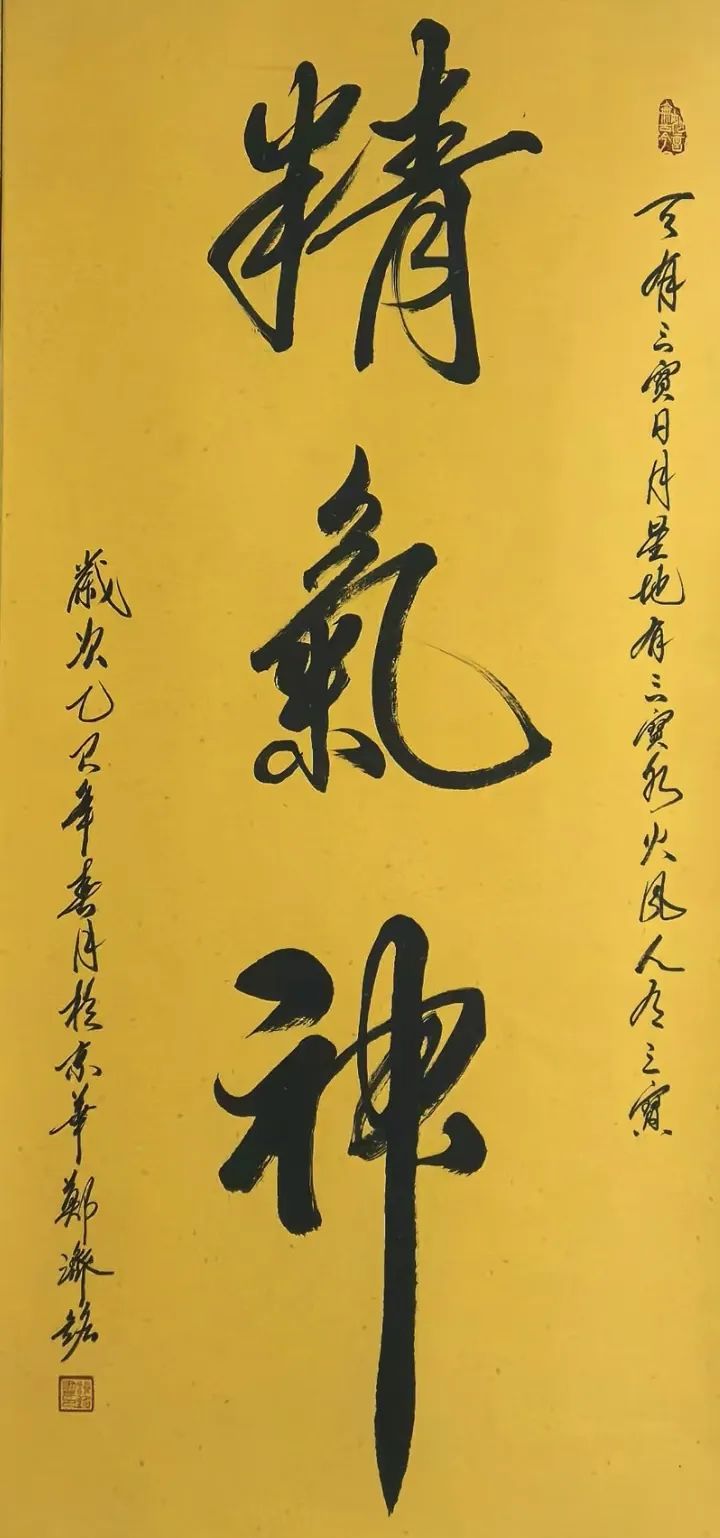 天有三寶日月星地有三寶水火風人有三寶
精氣神
歲次乙巳年春月於京華鄭